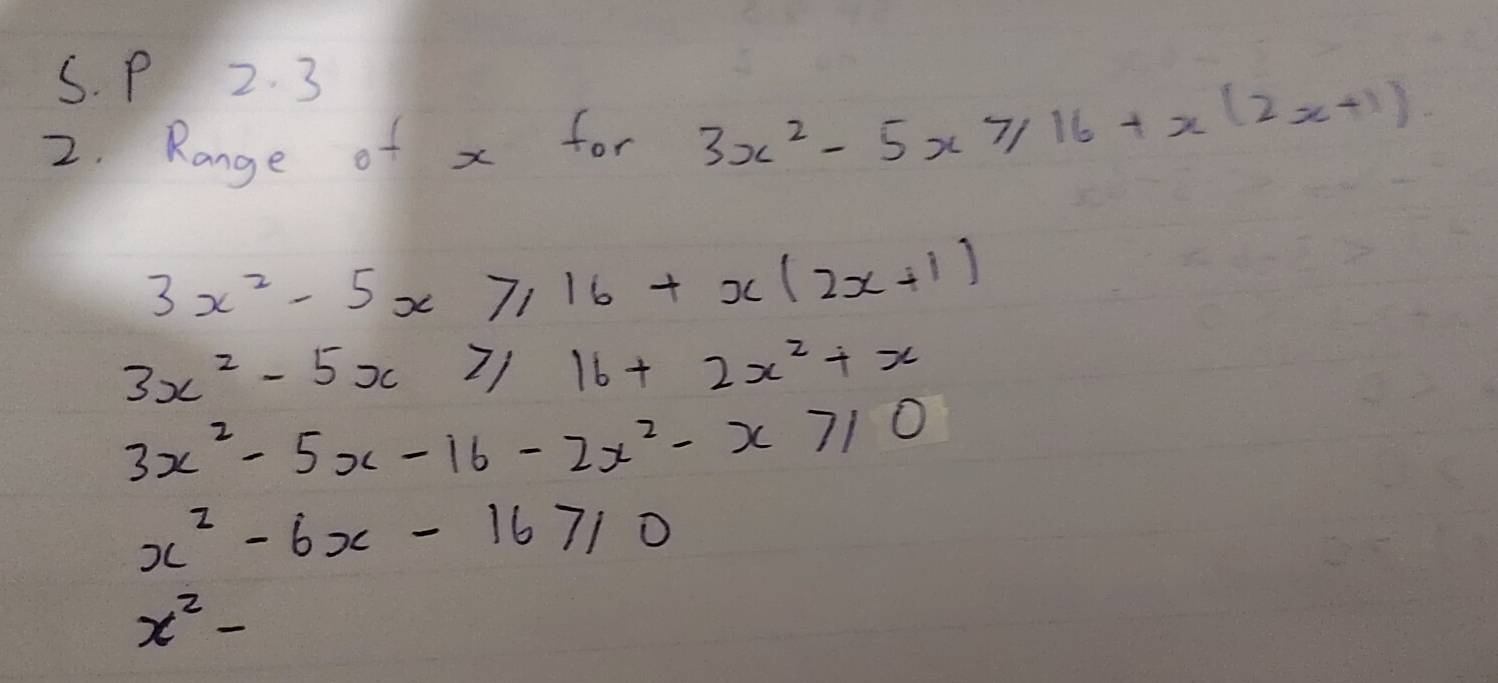 S.P 2.3
2. Range of x for 3x² - 5x ⩾ 16 + x(2x+1).
3x² - 5x ⩾ 16 + x(2x+1)
3x² - 5x ⩾ 16 + 2x² + x
3x² - 5x - 16 - 2x² - x ⩾ 0
x² - 6x - 16 ⩾ 0
x² -